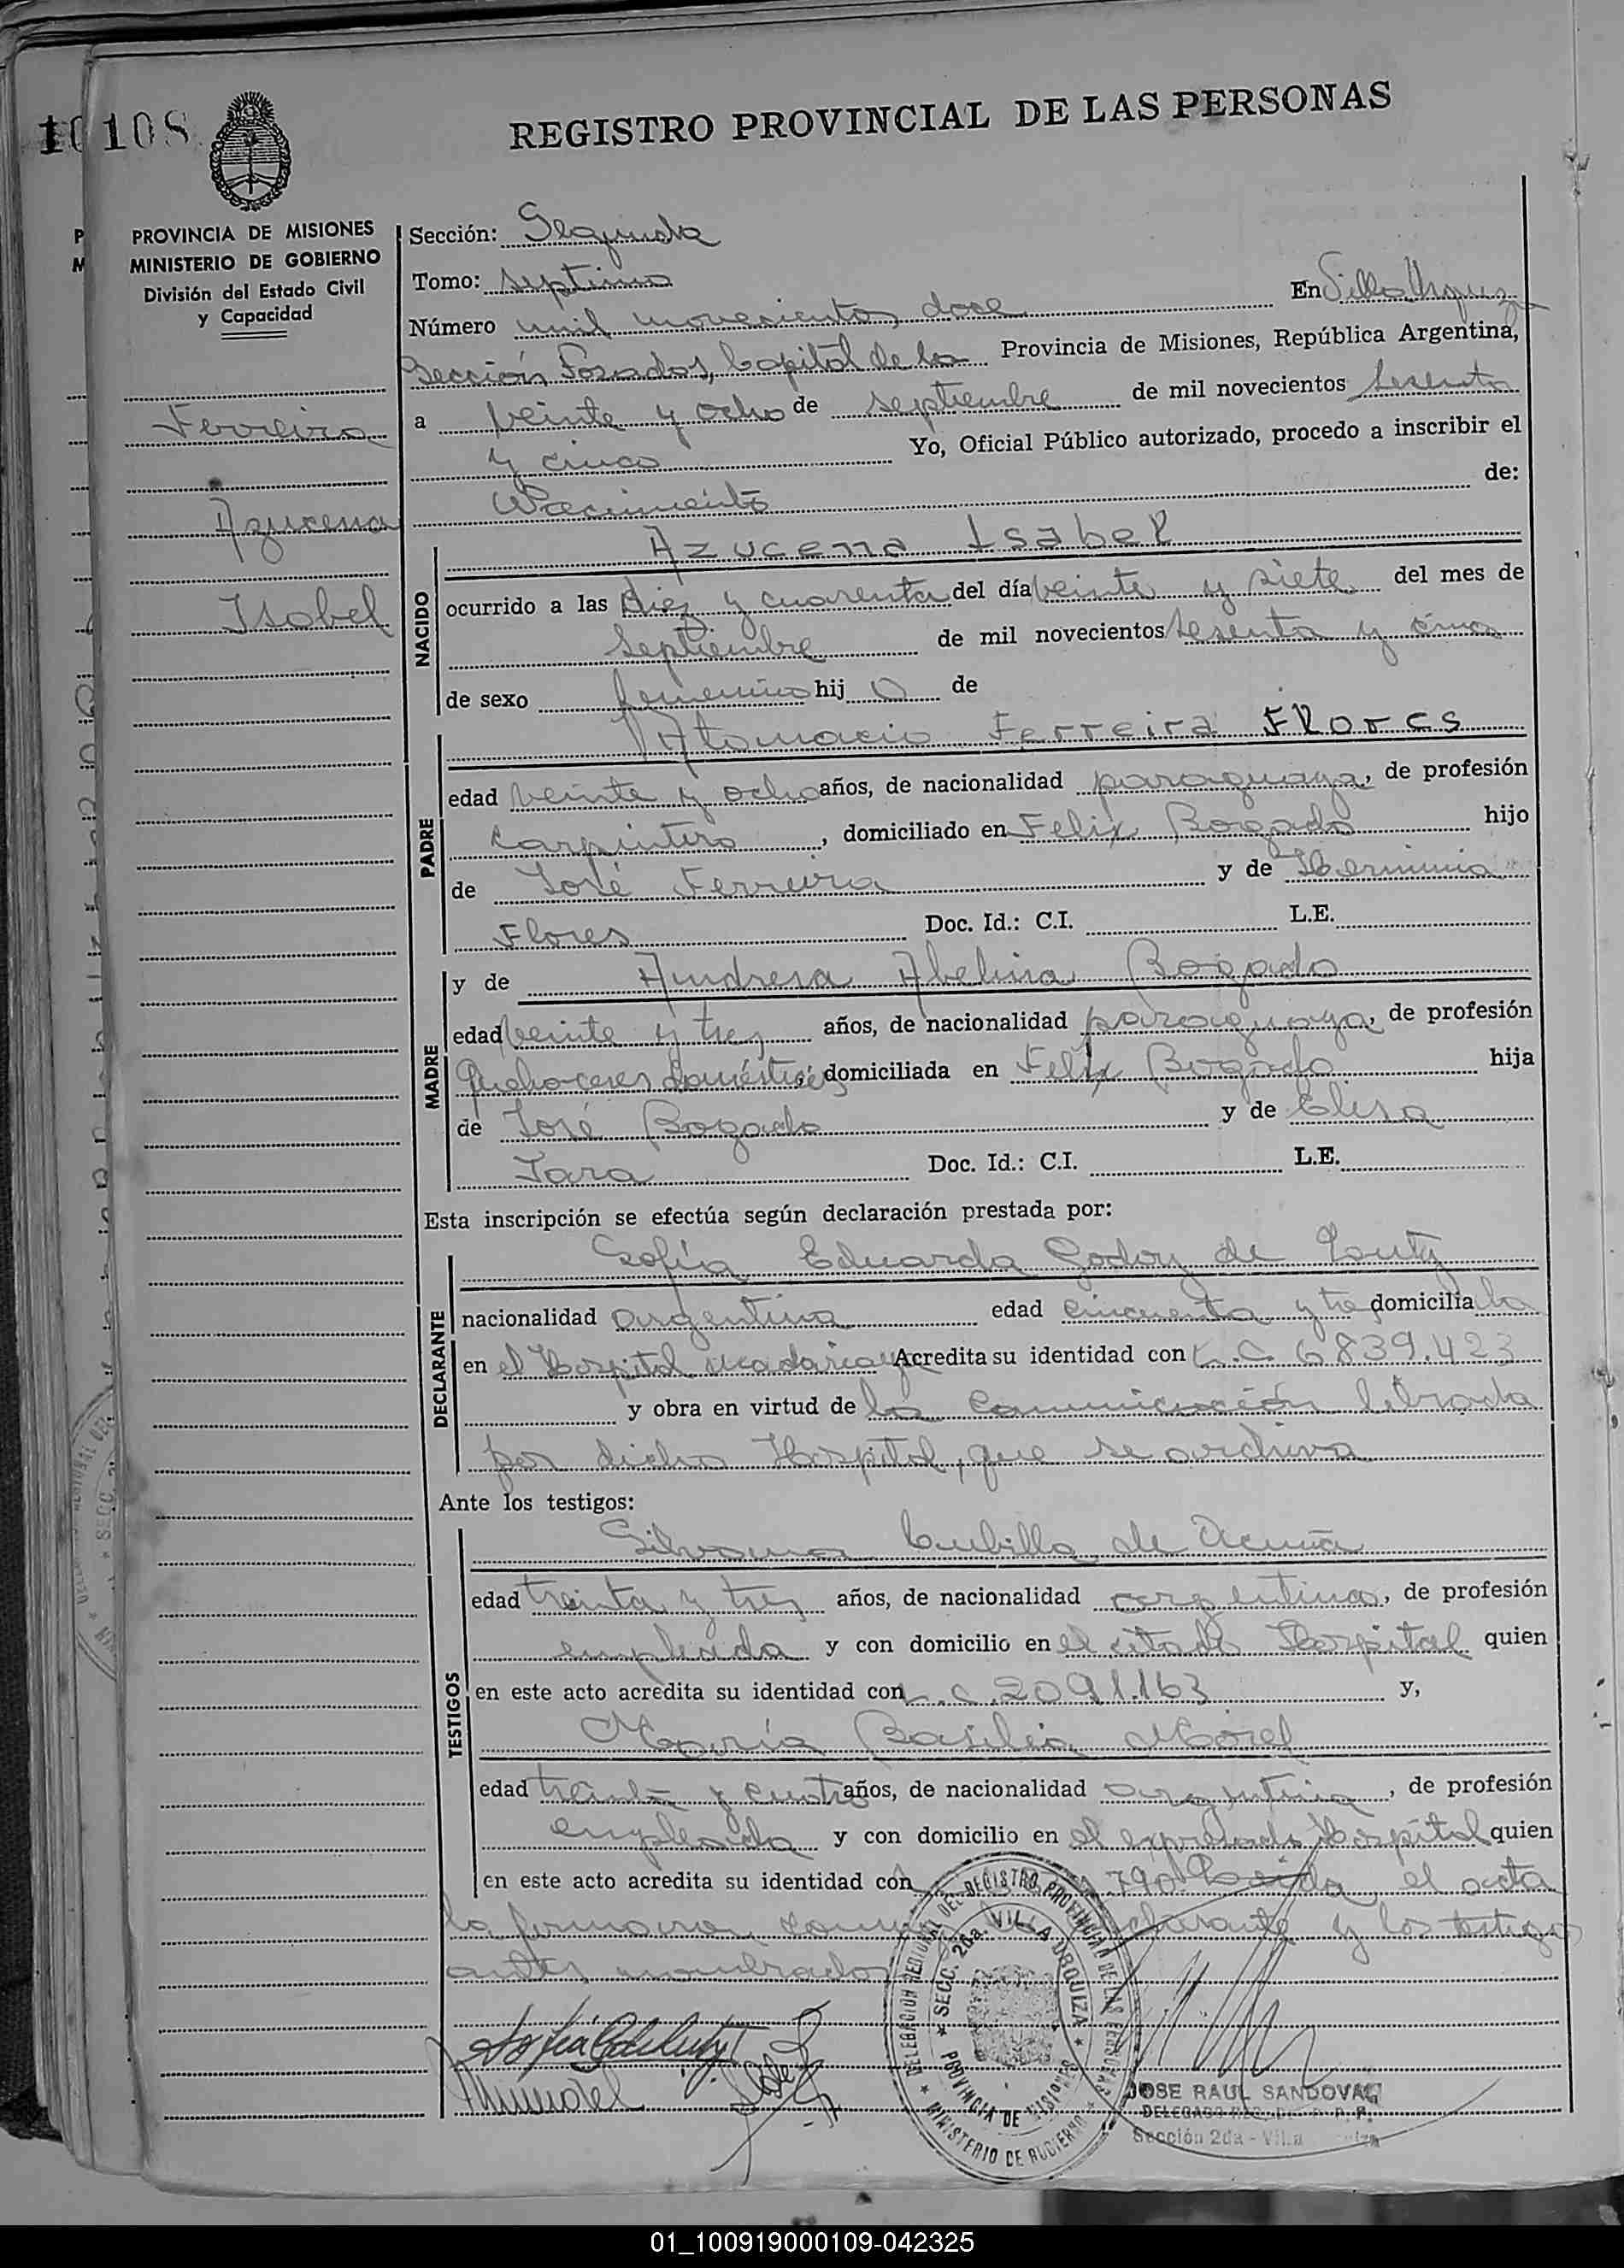 108
REGISTRO PROVINCIAL DE LAS PERSONAS
PROVINCIA DE MISIONES
MINISTERIO DE GOBIERNO
División del Estado Civil
y Capacidad
Ferreira
Azucena
Isabel
Sección: Segunda
Tomo: septimo
Número mil novecientos doce En Villa Urquiza
Sección Posadas, Capital de la Provincia de Misiones, República Argentina,
a veinte y ocho de septiembre de mil novecientos sesenta
y cinco Yo, Oficial Público autorizado, procedo a inscribir el
Nacimiento de:
NACIDO
Azucena Isabel
ocurrido a las diez y cuarenta del día veinte y siete del mes de
septiembre de mil novecientos sesenta y cinco
de sexo femenino hij o de
PADRE
Atomacio Ferreira Flores
edad veinte y ocho años, de nacionalidad paraguaya, de profesión
carpintero, domiciliado en Felix Bogado hijo
de José Ferreira y de Herminia
Flores Doc. Id.: C.I. L.E.
MADRE
y de Andresa Abelina Bogado
edad veinte y tres años, de nacionalidad paraguaya, de profesión
Quehaceres domésticos domiciliada en Felix Bogado hija
de José Bogado y de Elisa
Jara Doc. Id.: C.I. L.E.
Esta inscripción se efectúa según declaración prestada por:
DECLARANTE
Sofía Eduarda Godoy de
nacionalidad argentina edad cincuenta y tre domicilia
en el Hospital Madariaga Acredita su identidad con L.C. 6839.423
y obra en virtud de la comunicación librada
por dicho Hospital, que se archiva
Ante los testigos:
TESTIGOS
Silvana Cubilla de Acuña
edad treinta y tres años, de nacionalidad argentina, de profesión
empleada y con domicilio en el citado Hospital quien
en este acto acredita su identidad con L.C. 2091.163 y,
María Basilia Morel
edad treinta y cuatro años, de nacionalidad argentina, de profesión
empleada y con domicilio en el expresado Hospital quien
en este acto acredita su identidad con 790 Leida el acta
la firman y los testigos
antes nombrados
DELEGACION REGIONAL DEL REGISTRO PROVINCIAL DE LAS PERSONAS
SECC. 2da. VILLA URQUIZA
PROVINCIA DE MISIONES
MINISTERIO DE GOBIERNO
JOSE RAUL SANDOVAL
DELEGADO
Sección 2da - Villa
01_100919000109-042325